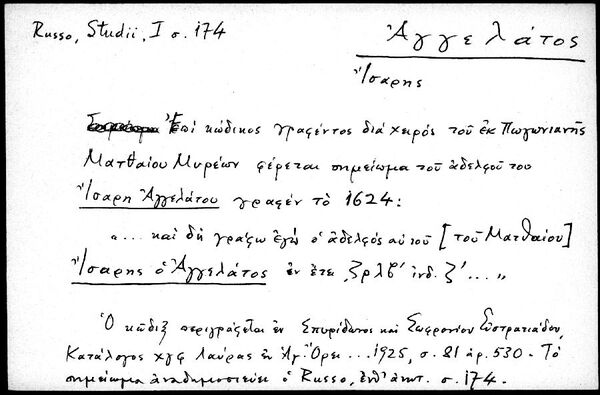 Russo, Studii, I σ. 174
Ἀγγελάτος
Ἴσαρης
Ἐπί κώδικος γραφέντος διά χειρός τοῦ ἐκ Πωγωνιανῆς
Ματθαίου Μυρέων φέρεται σημείωμα τοῦ ἀδελφοῦ του
Ἴσαρη Ἀγγελάτου γραφέν τὸ 1624:
"... καὶ δὴ γράφω ἐγὼ ὁ ἀδελφός αὐτοῦ [τοῦ Ματθαίου]
Ἴσαρης ὁ Ἀγγελάτος ἐν ἔτει ͵ζρλβ' ἰνδ. ζ' ... "
Ὁ κῶδιξ περιγράφεται ἐν Σπυρίδωνος καὶ Σωφρονίου Εὐστρατιάδου,
Κατάλογος χγφ Λαύρας ἐν Ἁγ. Ὄρει ... 1925, σ. 81 ἀρ. 530 - Τὸ
σημείωμα ἀναδημοσιεύει ὁ Russo, ἔνθ' ἀνωτ. σ. 174.